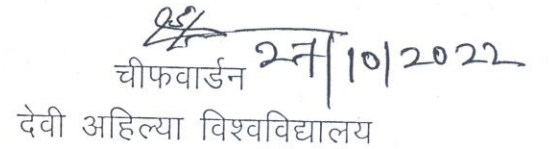 चीफवार्डन 27/10/2022
देवी अहिल्या विश्वविद्यालय